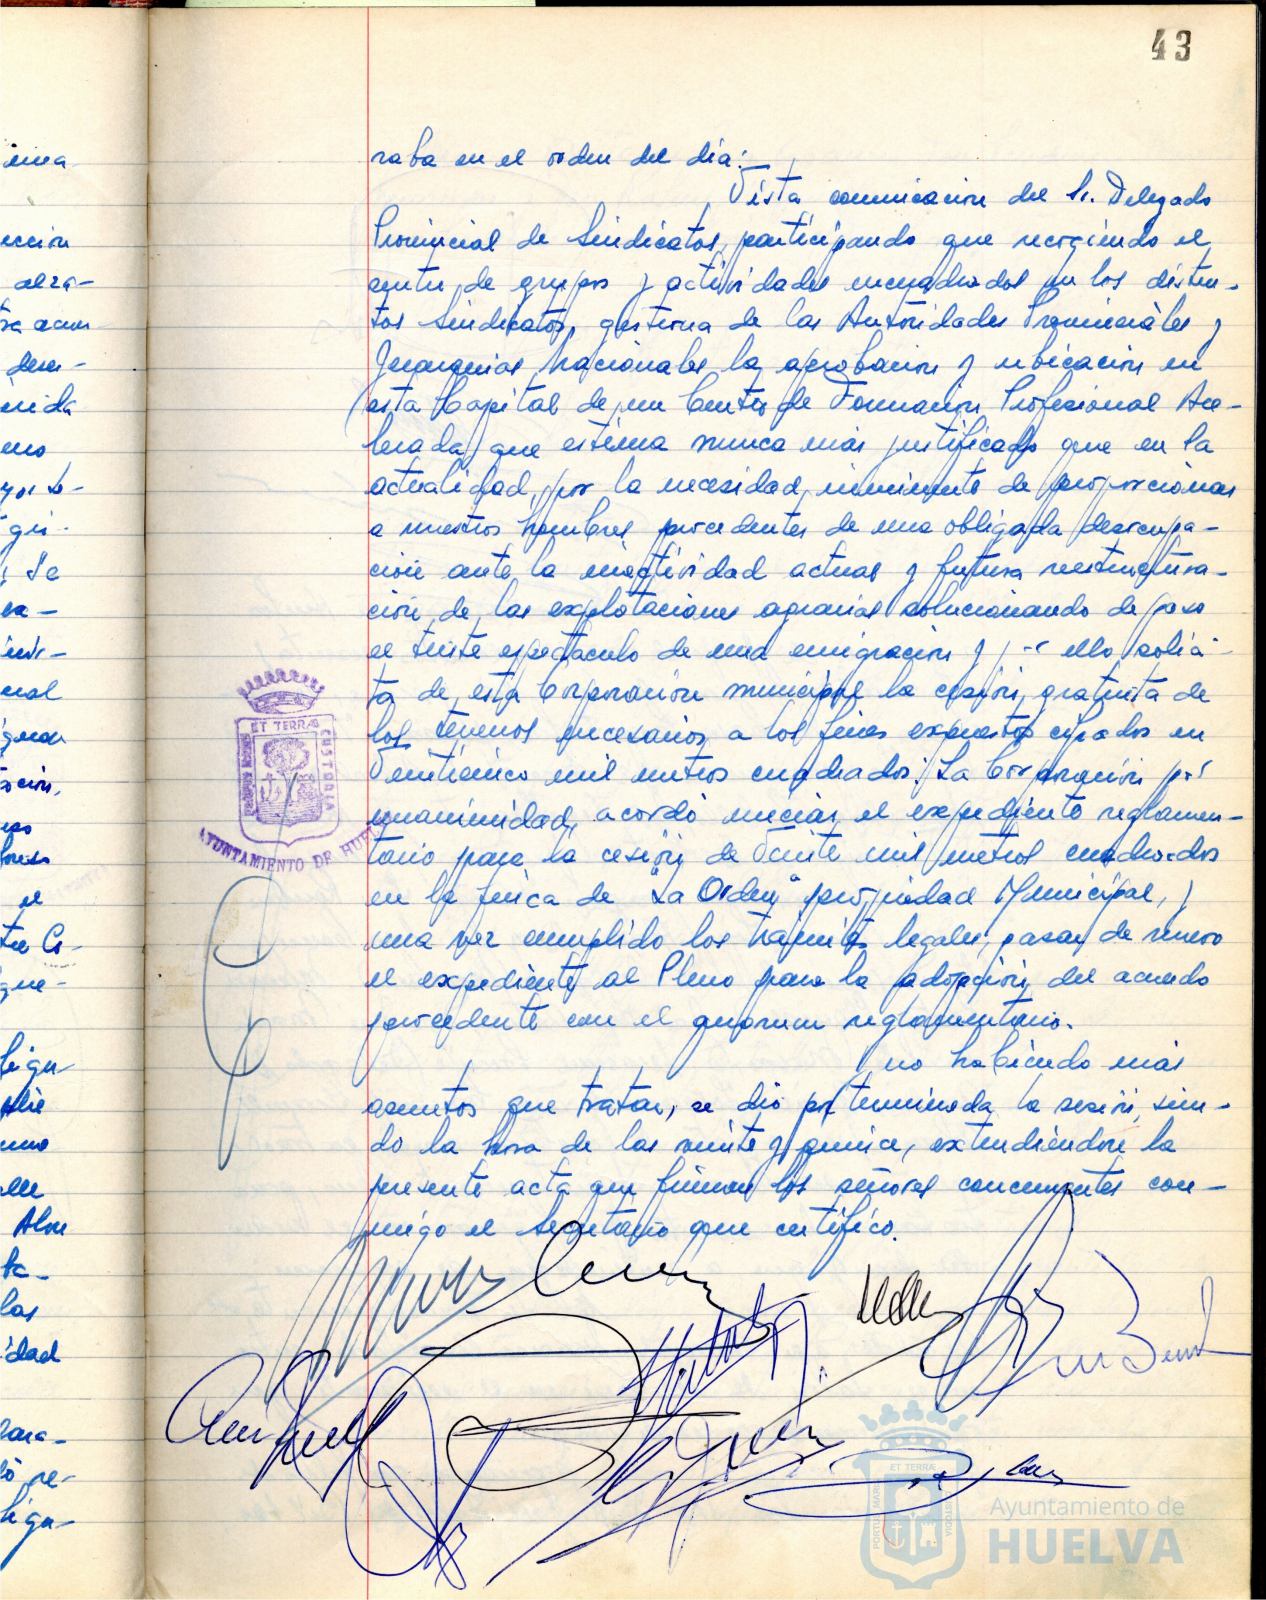 43
raba en el orden del día:
Vista comunicación del Sr. Delegado
Provincial de Sindicatos, participando que recogiendo el
sentir de grupos y actividades encuadrados en los distin-
tos Sindicatos, gestiona de las Autoridades Provinciales y
Jerarquías Nacionales la aprobación y ubicación en
esta Capital de un Centro de Formación Profesional Ace-
lerada, que estima nunca más justificado que en la
actualidad, por la necesidad inminente de proporcionar
a nuestros hombres procedentes de una obligada desocupa-
ción ante la inactividad actual y futura restructura-
ción de las explotaciones agrarias solucionando de paso
el triste espectáculo de una emigración y por ello solici-
ta de esta Corporación municipal la cesión gratuita de
los terrenos necesarios a los fines expuestos cifrados en
Veinticinco mil metros cuadrados: La Corporación por
unanimidad, acordó iniciar el expediente reglamen-
tario para la cesión de Veinte mil metros cuadrados
en la finca de "La Orden" propiedad Municipal, y
una vez cumplido los trámites legales, pasar de nuevo
el expediente al Pleno para la adopción del acuerdo
procedente con el quorum reglamentario.
no habiendo más
asuntos que tratar, se dió por terminada la sesión, sien-
do la hora de las veinte y quince, extendiéndose la
presente acta que firman los señores concurrentes con-
migo el Secretario que certifico.
ET TERRAE
CUSTODIA
AYUNTAMIENTO DE HUELVA
Ayuntamiento de
HUELVA